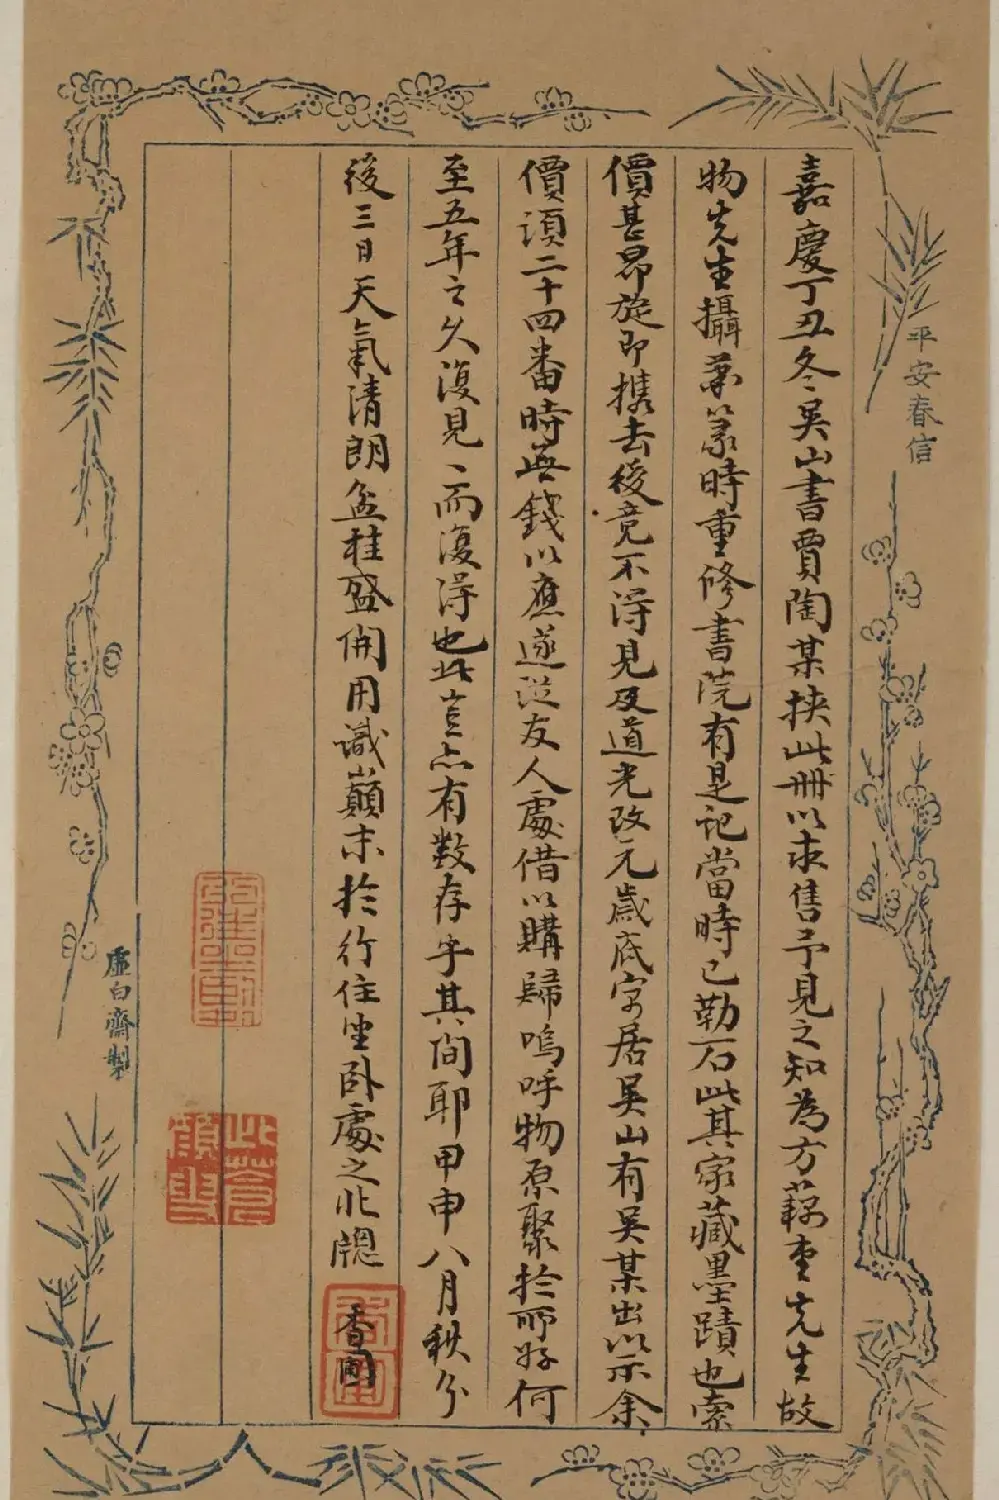 嘉慶丁丑冬吳山書賈陶某挾此冊以求售予見之知為方藕堂先生故
物先生攝萊篆時重修書院有是記當時已勒石此其家藏墨蹟也索
價甚昂旋即携去後竟不得見及道光改元歲底字居吳山有吳某出以示余
價須二十四番時無錢以應遂從友人處借以購歸嗚呼物原聚於所好何
至五年之久復見〻而復得也此豈亦有数存乎其間耶甲申八月秋分
後三日天氣清朗盆桂盛開用識巔末於行住坐卧處之北牕
香國
平安春信
虛白齋製